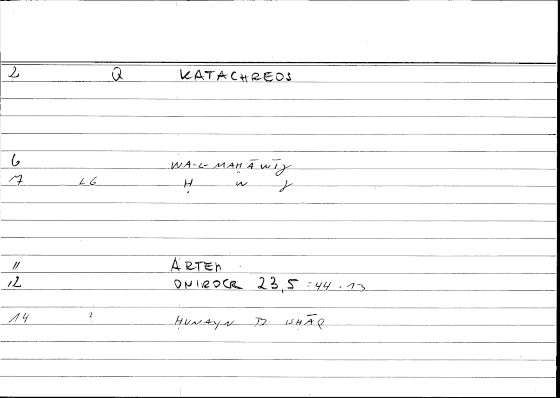 2 Q KATACHREOS
6 WA-L-MAḤĀWĪǦ
7 LG Ḥ W Ǧ
11 ARTEM
12 ONIROCR 23,5 : 44.13
14 2 ḤUNAYN B ISḤĀQ